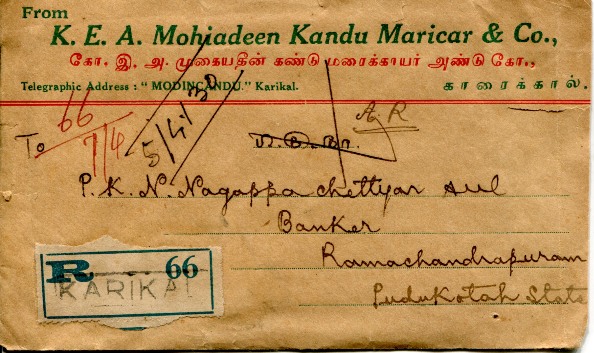 From
K. E. A. Mohiadeen Kandu Maricar & Co.,
கோ. இ. அ. முகையதின் கண்டு மரைக்காயர் அண்டு கோ.,
Telegraphic Address : "MODINCANDU." Karikal.
காரைக்கால்.
66
7/4
5/4/30
A. R
To
P. K. N. Nagappa Chettyar Aul
Banker
Ramachandrapuram
Pudukotah State
R 66
KARIKAL